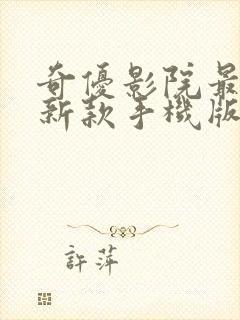 奇優影院最
新款手機版
許萍